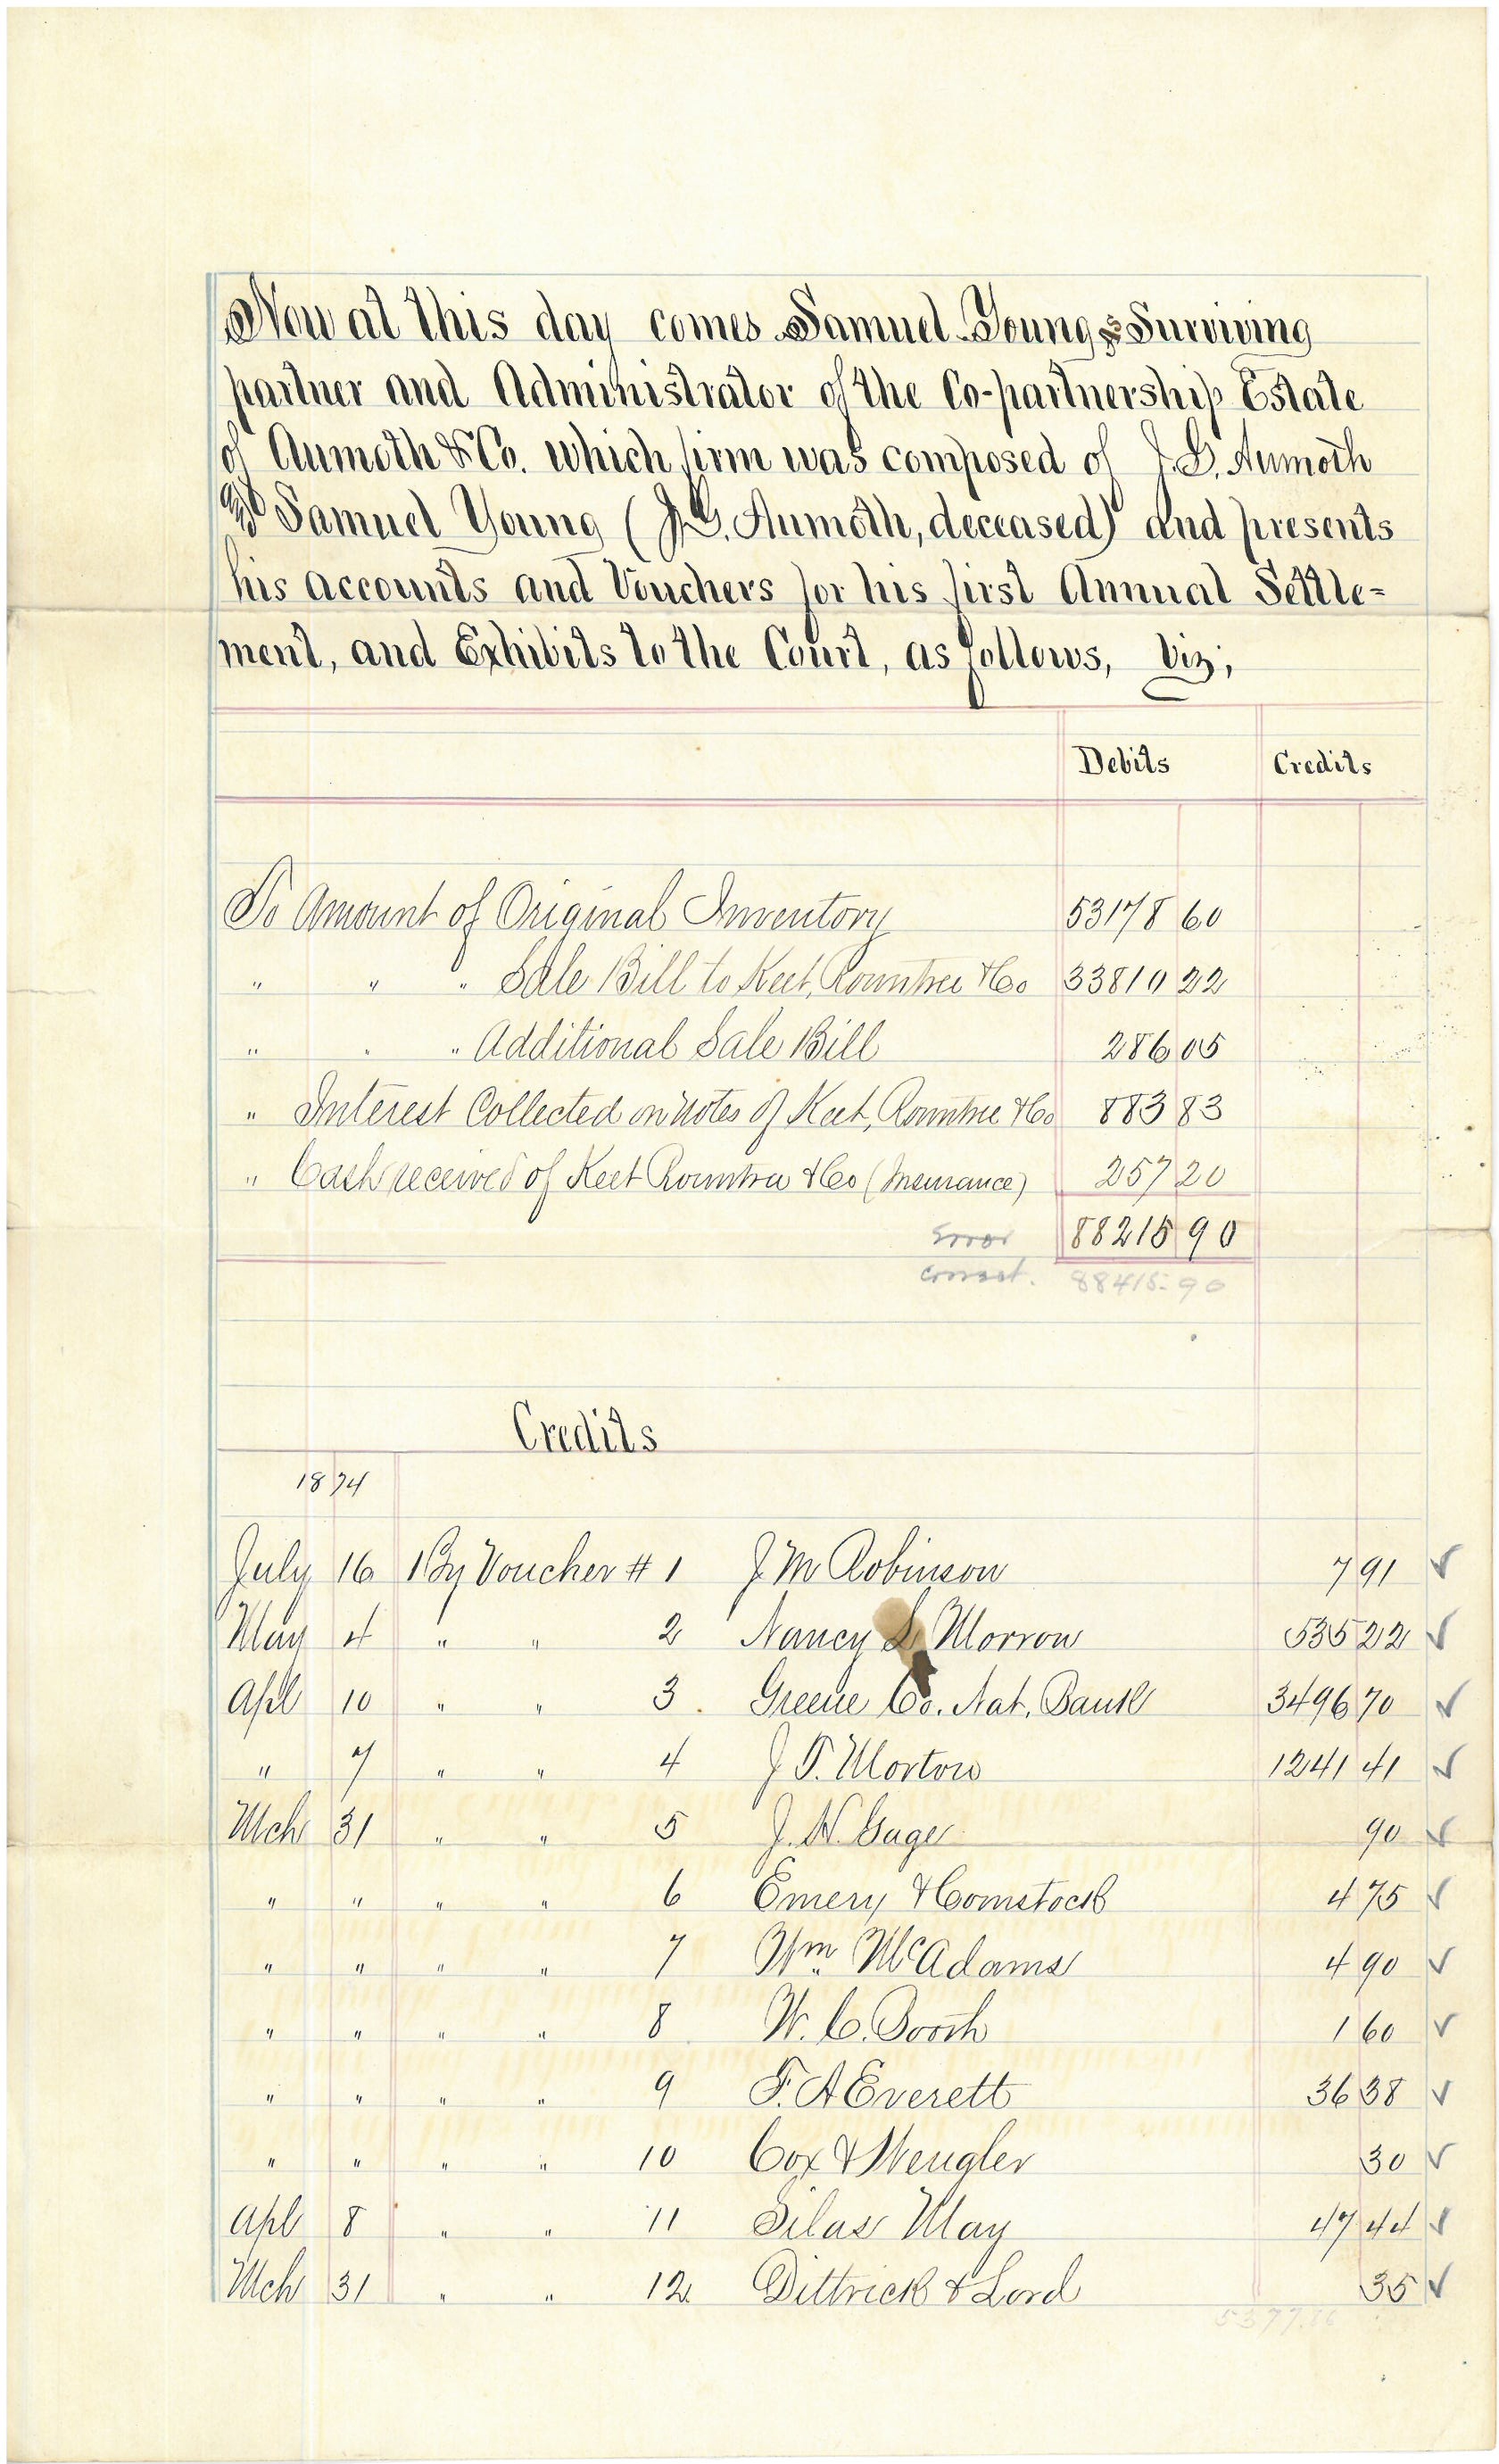 Now at this day comes Samuel Young Surviving
partner and Administrator of the Co-partnership Estate
of Aumoth & Co. which firm was composed of J. G. Aumoth
& Samuel Young (J. G. Aumoth, deceased) and presents
his accounts and Vouchers for his first Annual Settle-
ment, and Exhibits to the Court, as follows, Viz;
Debits Credits
To Amount of Original Inventory 53178 60
" " " Sale Bill to Keet, Rountree & Co 33810 22
" " " Additional Sale Bill 286 05
" Interest Collected on notes of Keet, Rountree & Co 883 83
" Cash received of Keet Rountree & Co (Insurance) 257 20
Error 88215 90
correct. 88415.90
Credits
1874
July 16 By Voucher # 1 J M Robinson 7 91 ✓
May 4 " " 2 Nancy Morrow 535 22 ✓
Apl 10 " " 3. Greene Co. Nat. Bank 3496 70 ✓
" 7 " " 4 J. P. Morton 1241 41 ✓
Mch 31 " " 5 J. N. Gage 90 ✓
" " " " 6 Emery & Comstock 4 75 ✓
" " " " 7 Wm McAdams 4 90 ✓
" " " " 8 W. C. Booth 1 60 ✓
" " " " 9 F. A Everett 36 38 ✓
" " " " 10 Cox & Wengler 30 ✓
Apl 8 " " 11 Silas May 47 44 ✓
Mch 31 " " 12 Dittrick & Lord 35 ✓
5377.86